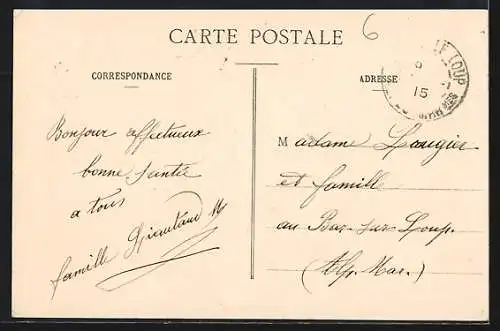 6
CARTE POSTALE
CORRESPONDANCE
ADRESSE
LE LOUP
15
Bonjour affectueux
bonne santé
a tous
famille
Madame Laugier
et famille
au Bar-sur-Loup.
(Alp. Mar.)